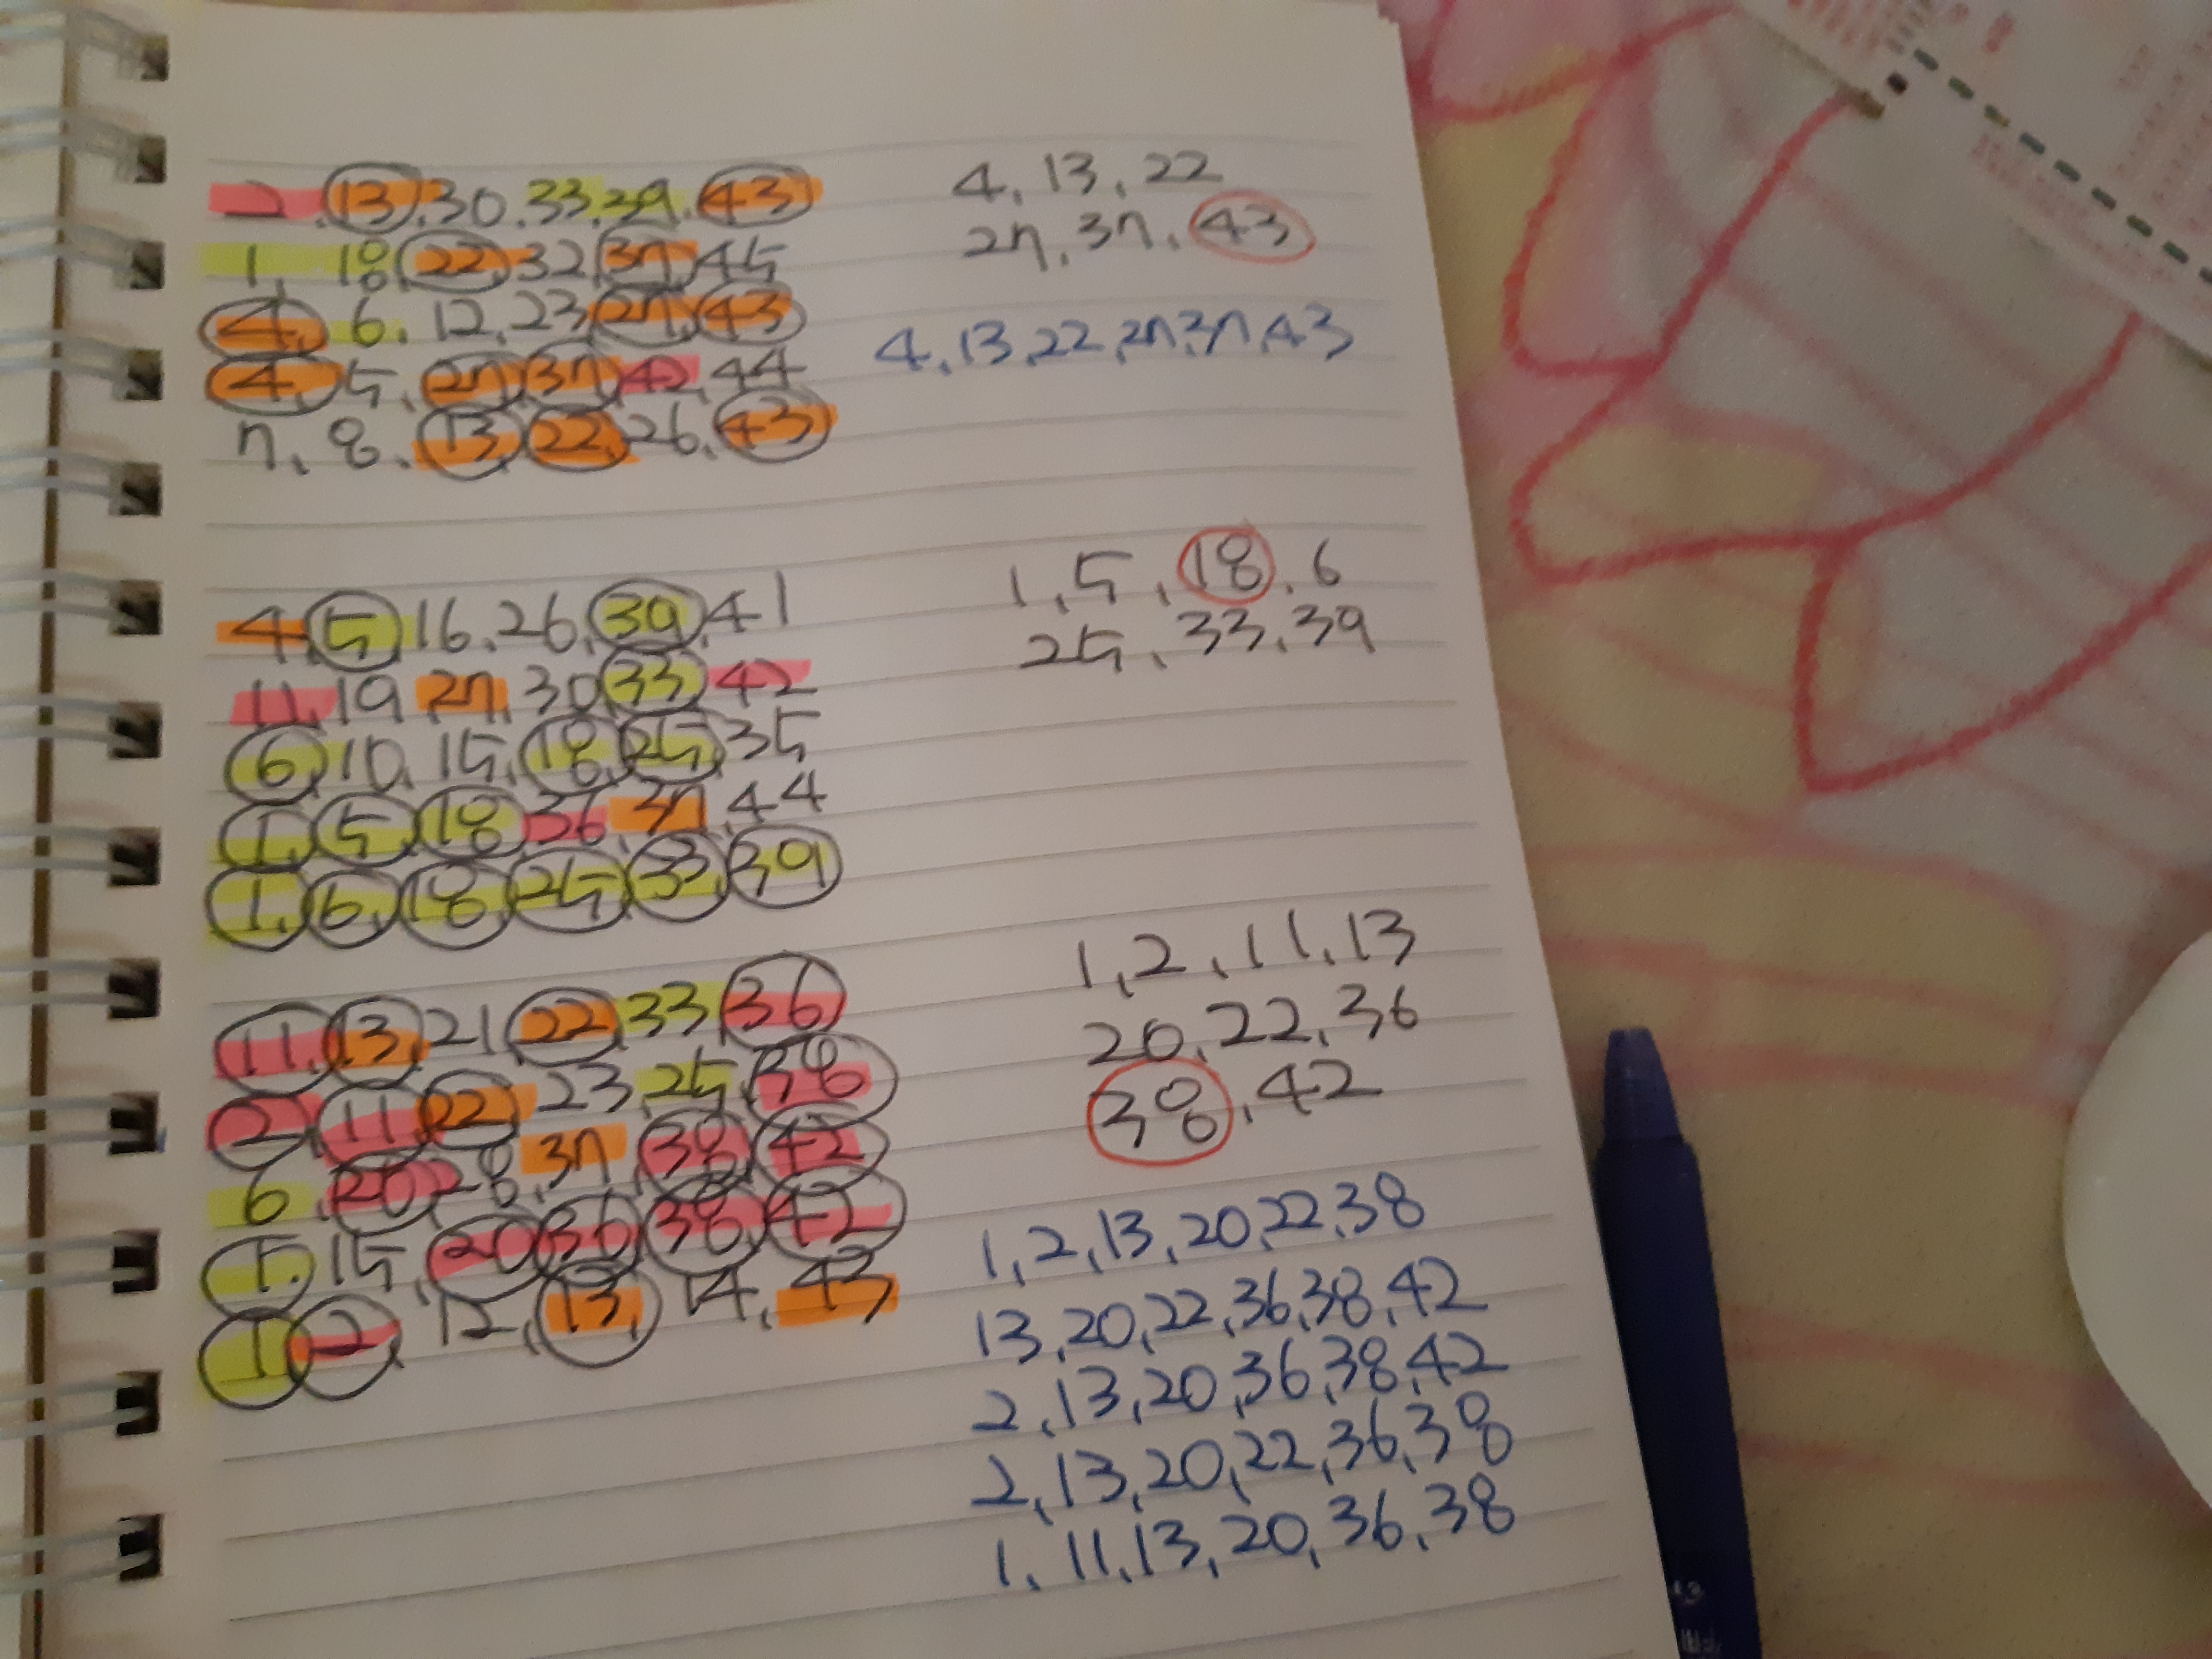 2, 13, 30, 33, 39, 43
4, 13, 22
1, 18, 22, 32, 37, 45
27, 37, 43
4, 6, 12, 23, 27, 43
4, 13, 22, 27, 37, 43
4, 5, 27, 37, 42, 44
7, 8, 13, 22, 26, 43
4, 5, 16, 26, 39, 41
1, 5, 18, 6
11, 19, 27, 30, 33, 42
25, 33, 39
6, 10, 15, 18, 25, 35
1, 5, 18, 36, 37, 44
1, 6, 18, 25, 33, 39
11, 13, 21, 22, 33, 36
1, 2, 11, 13
2, 11, 22, 23, 25, 38
20, 22, 36
6, 20, 28, 37, 38, 42
38, 42
1, 15, 20, 36, 38, 42
1, 2, 12, 13, 14, 43
1, 2, 13, 20, 22, 38
13, 20, 22, 36, 38, 42
2, 13, 20, 36, 38, 42
2, 13, 20, 22, 36, 38
1, 11, 13, 20, 36, 38